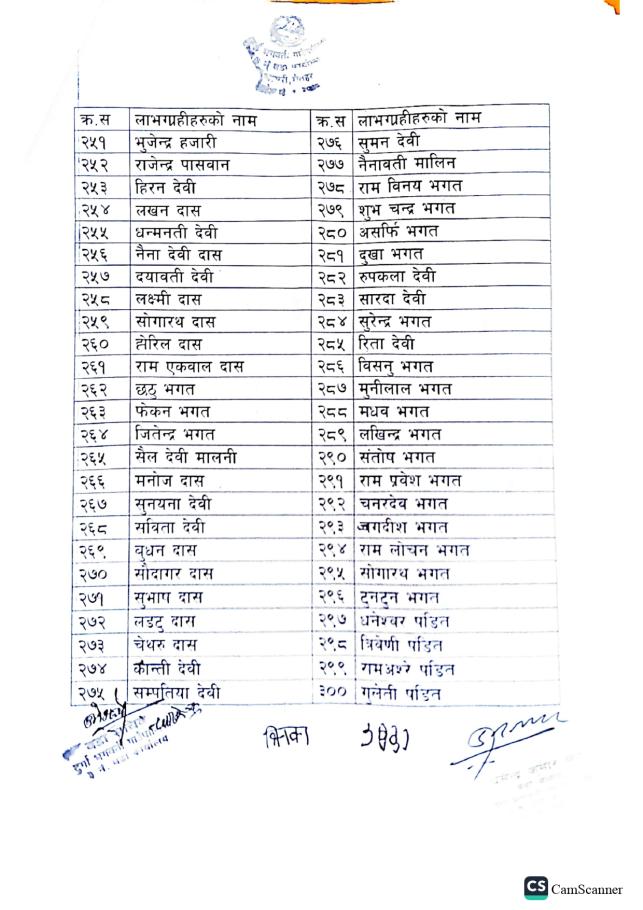 क्र.स लाभग्रहीहरुको नाम क्र.स लाभग्रहीहरुको नाम
२५१ भुजेन्द्र हजारी २७६ सुमन देवी
२५२ राजेन्द्र पासवान २७७ नैनावती मालिन
२५३ हिरन देवी २७८ राम विनय भगत
२५४ लखन दास २७९ शुभ चन्द्र भगत
२५५ धन्मनती देवी २८० असर्फि भगत
२५६ नैना देवी दास २८१ दुखा भगत
२५७ दयावती देवी २८२ रुपकला देवी
२५८ लक्ष्मी दास २८३ सारदा देवी
२५९ सोगारथ दास २८४ सुरेन्द्र भगत
२६० होरिल दास २८५ रिता देवी
२६१ राम एकवाल दास २८६ विसनु भगत
२६२ छठु भगत २८७ मुनीलाल भगत
२६३ फेकन भगत २८८ मधव भगत
२६४ जितेन्द्र भगत २८९ लखिन्द्र भगत
२६५ सैल देवी मालनी २९० संतोष भगत
२६६ मनोज दास २९१ राम प्रवेश भगत
२६७ सुनयना देवी २९२ चनरदेव भगत
२६८ सविता देवी २९३ जगदीश भगत
२६९ वुधन दास २९४ राम लोचन भगत
२७० सौदागर दास २९५ सोगारथ भगत
२७१ सुभाष दास २९६ टुनटुन भगत
२७२ लडटु दास २९७ धनेश्वर पंडित
२७३ चेथरु दास २९८ त्रिवेणी पंडित
२७४ कान्ती देवी २९९ रामअश्रे पंडित
२७५ सम्पतिया देवी ३०० गुलेती पंडित
CS CamScanner